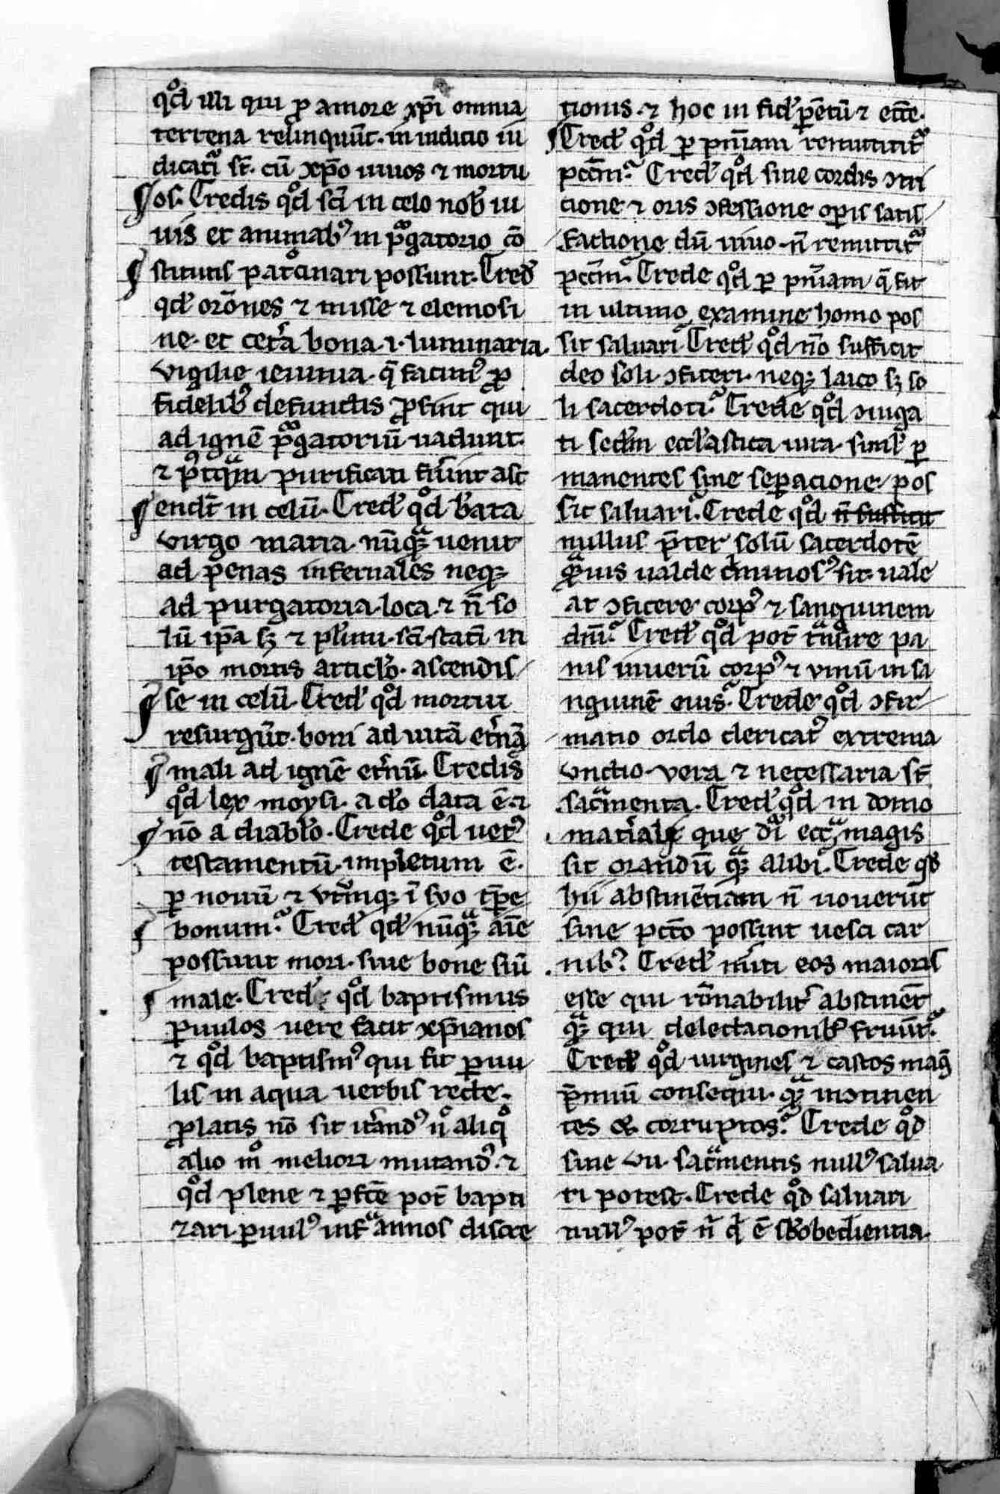 qd illi qui p amore xpi omnia
terrena relinquūt · in iudicio iu
dicat̄i st̄ · cū xp̄o uiuos ⁊ mortu
os · Credis qd sc̄i in celo nob̄ iu
uis et animab᷒ in pgatorio cō
stitutis patᵒcinari possunt · Cred̄
qd orōnes ⁊ misse ⁊ elemosi
ne · et cetᵃ bona · i · luminaria ·
vigilie ieiunia · q̄ faciūt p
fidelib᷒ defunctis psint qui
ad ignē pgatoriū uadunt ·
⁊ pꝰtqᵃm purificati fūint asc
endt̄ in celū · Cred̄ qd bāta
virgo maria · nūqᵃ uenit
ad penas infernales neqꝫ
ad purgatoria · loca · ⁊ n̄ so
lū ip̄a sꝫ ⁊ pl̄imi · sc̄i · statī in
ip̄o mortis articl̄o · ascendis
se in celū · Cred̄ qd mortui
resurgūt · boni ad uitā et̄nā
mali ad ignē et̄nū · Credis
qd lex moysi · a dō data ē · ⁊
nō a diabl̄o · Crede qd uet᷒
testamentū · impletum ē ·
ꝑ nouū ⁊ vtrūqꝫ ī suo tp̄e
bonum · Cred̄ qd nūqᵃ aīe
possunt mori · siue bone siū
male · Crede qd baptismus
ꝑuulos uere facit xp̄ianos
⁊ qd baptism᷒ qui fit ꝑuu
lis in aqua uerbis recte
platis nō sit it̄and᷒ ⁿ aliqᵒ
alio mᵒ meliori mutand᷒ · ⁊
qd plene ⁊ ꝑfc̄e pot̄ bapti
zari ꝑuul᷒ infᵃ annos discre
tionis · ⁊ hoc in fid̄ pēntū ⁊ ecc̄e ·
Cred̄ qd ꝑ pn̄iam remittitᵘʳ
pcc̄m · Cred̄ qd sine cordis ↄtri
cione ⁊ oris ↄfessione opis satis
factione dū uiuo · n̄ remittitᵘʳ
pcc̄m · Crede qd ꝑ pn̄iam q̄ fit
in ultimo examine homo pos
sit saluari · Cred̄ qd nō sufficit
deo soli ↄfiteri · neqꝫ laico sꝫ so
li sacerdoti · Crede qd ↄiuga
ti secdm eccl̄astica iura · simul ꝑ
manentes sine sepacione · pos
sit saluari · Crede qd n̄ sufficit
nullus p̄ter solū sacerdotē
qᵃuis ualde cⁱminos᷒ sit · uale
at ↄficere corp᷒ ⁊ sanguinem
dn̄i · Cred̄ qd pot̄ tᵃnsire pa
nis in uerū corp᷒ ⁊ vinū in sa
nguinē eius · Crede qd ↄfir
matio ordo clericat᷒ extrema
vnctio · vera ⁊ necessaria st̄
sacᵃmenta · Cred̄ qd in domo
materiali que dⁱ ecc̄a magis
sit orandū qᵃ alibi · Crede qd
hii abstinentiam n̄ uouerūt
sine pcc̄o possint uesci car
nib᷒ · Cred̄ mⁱti eos maioris
esse qui rōnabilit᷒ abstinēt
qᵃ qui delectacionib᷒ fruūt ·
Crede qd uirgines ⁊ castos mag̅
p̄miū consequi · qᵃ incontinen
tes & corruptos · Crede qd
sine vii · sacᵃmentis null᷒ salua
ri potest · Crede qd saluari
null᷒ pot̄ nⁱ qⁱ ē sb̄ obedientia ·